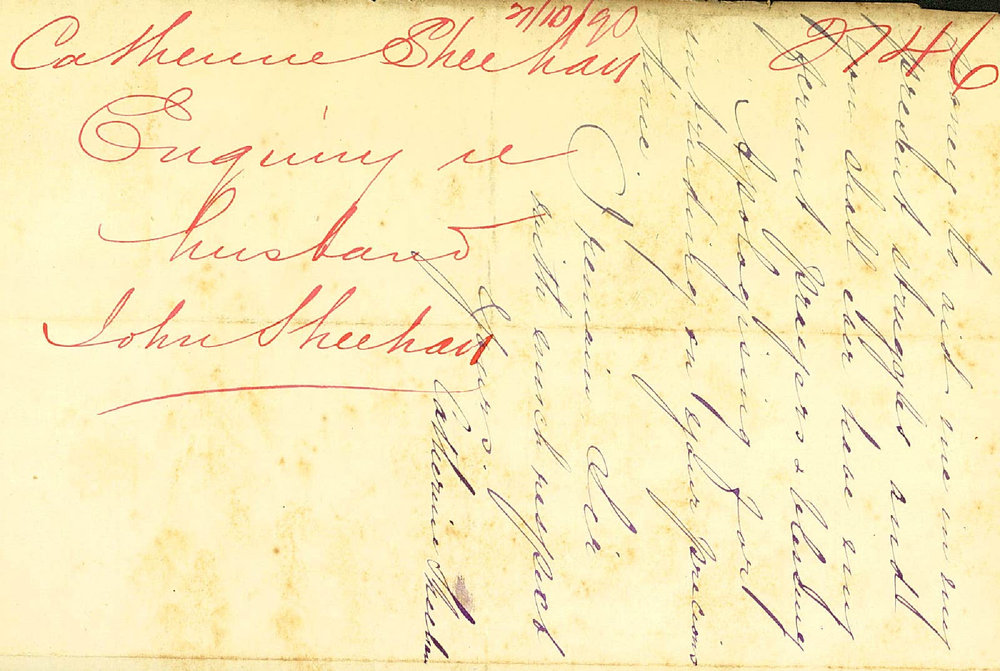 21/10/90
Catherine Sheehan
2746
Enquiry re
husband
John Sheehan
money to aid me in my
present struggle and
you shall ever have my
fervent prayers & blessing
Apologising for
intruding on your precious
time.
I remain Sir
with much respect
Yours.
Catherine Sheehan